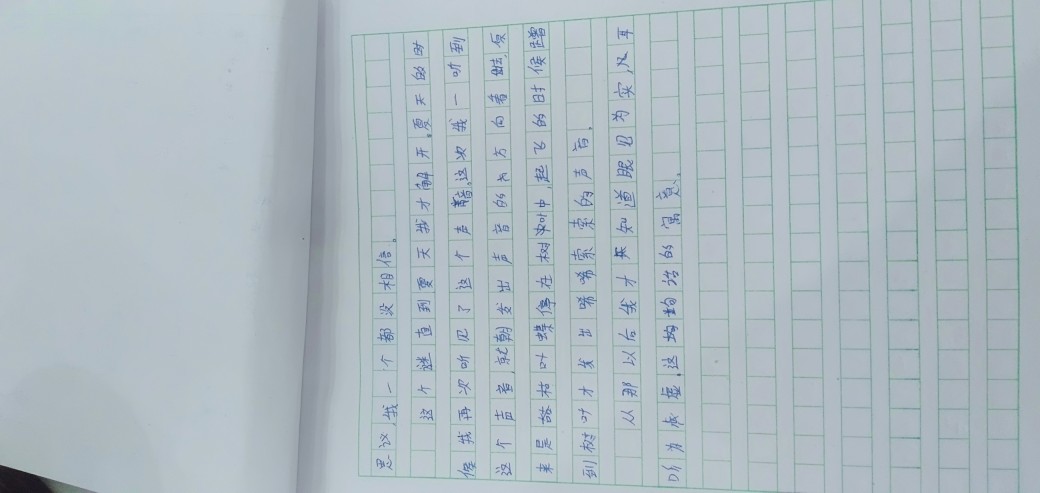 思议,我一个都没相信。
这个谜直到夏天我才解开。夏天的时
候我再次听见了这个声音,这次我一听到
这个声音,就朝发出声音的方向看去,原
来是枯叶蝶停在树叶中,起飞的时候蹭
到树叶才发出唏唏索索的声音。
从那以后我才知道眼见为实,及耳
听为虚,这句话的寓意。